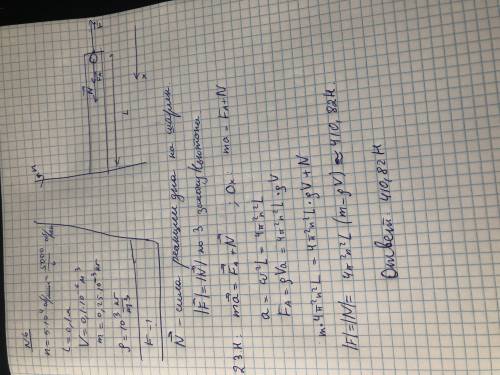 №6
n = 5·10⁴ об/мин = 5000/6 об/с
L = 0,1 м
V = 0,1·10⁻³ м³
m = 0,15·10⁻³ кг
ρ = 10³ кг/м³
F - ?
ω
L
N⃗
F⃗
x
N⃗ - сила реакции дна на шарик
|F⃗| = |N⃗| по 3 закону Ньютона
2 З.Н. ma⃗ = F⃗A + N⃗ ; Ox ma = FA + N
a = ω²L = 4π²n²L
FA = ρVa = 4π²n²L·ρV
m·4π²n²L = 4π²n²L·ρV + N
|F| = |N| = 4π²n²L (m - ρV) ≈ 410,82 Н.
Ответ: 410,82 Н